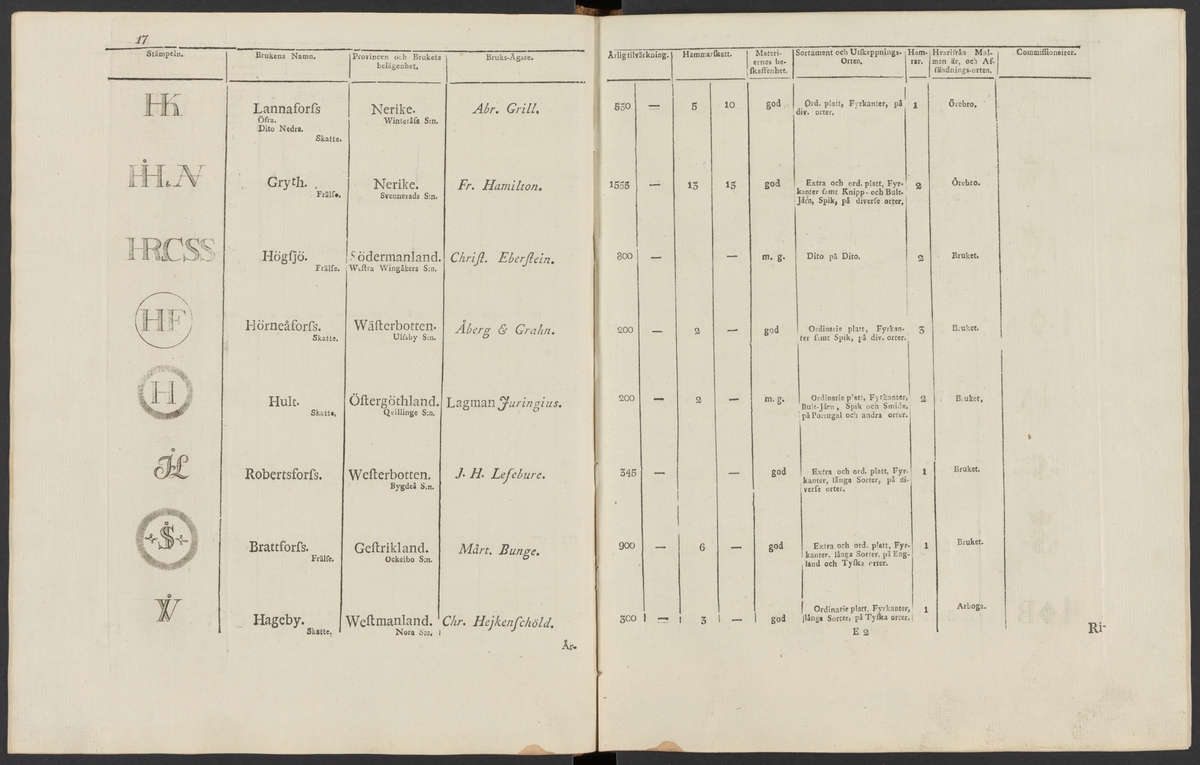 17
Stämpeln. Brukens Namn. Provincen och Brukets belägenhet. Bruks-Ägare. Årlig tilvärkning. Hammarſkatt. Materiernes beſkaffenhet. Sortament och Utſkeppnings-Orten. Hamrar. Hvarifrån Malmen är, och Afſändnings-orten. Commiſſionairer.
HK Lannaforſs Nerike. Abr. Grill. 850 — 5 10 god Ord. platt, Fyrkanter, på 1 Örebro.
Öfra. Winteråſa S:n. div. orter.
Dito Nedra.
Skatte.
HHLN Gryth. Nerike. Fr. Hamilton. 1555 — 13 15 god Extra och ord. platt, Fyr- 2 Örebro.
Frälſe. Svennevads S:n. kanter ſamt Knipp- och Bult-
Järn, Spik, på diverſe orter.
HRCSS Högſjö. Södermanland. Chriſt. Eberſtein. 800 — — m. g. Dito på Dito. 2 Bruket.
Frälſe. Weſtra Wingåkers S:n.
HF Hörneåforſs. Wäſterbotten. Åberg & Grahn. 200 — 2 — god Ordinarie platt, Fyrkan- 3 Bruket.
Skatte. S:n. ter ſamt Spik, på div. orter.
H Hult. Öſtergöthland. Lagman Juringius. 200 — 2 — m. g. Ordinarie platt, Fyrkanter, 2 Bruket.
Skatte. Qvillinge S:n. Bult-Järn, Spik och Smide,
på Portugal och andra orter.
JHL Robertsforſs. Weſterbotten. J. H. Lefebure. 345 — — god Extra och ord. platt, Fyr- 1 Bruket.
Bygdeå S:n. kanter, långa Sorter, på di-
verſe orter.
S Brattforſs. Geſtrikland. Mårt. Bunge. 900 — 6 — god Extra och ord. platt, Fyr- 1 Bruket.
Frälſe. Ockelbo S:n. kanter, långa Sorter, på Eng-
land och Tyſka orter.
W Hageby. Weſtmanland. Chr. Hejkenſchöld. 300 — 3 — god Ordinarie platt, Fyrkanter, 1 Arboga.
Skatte. Nora S:n. långa Sorter, på Tyſka orter.
Är-
E 2
Ri-